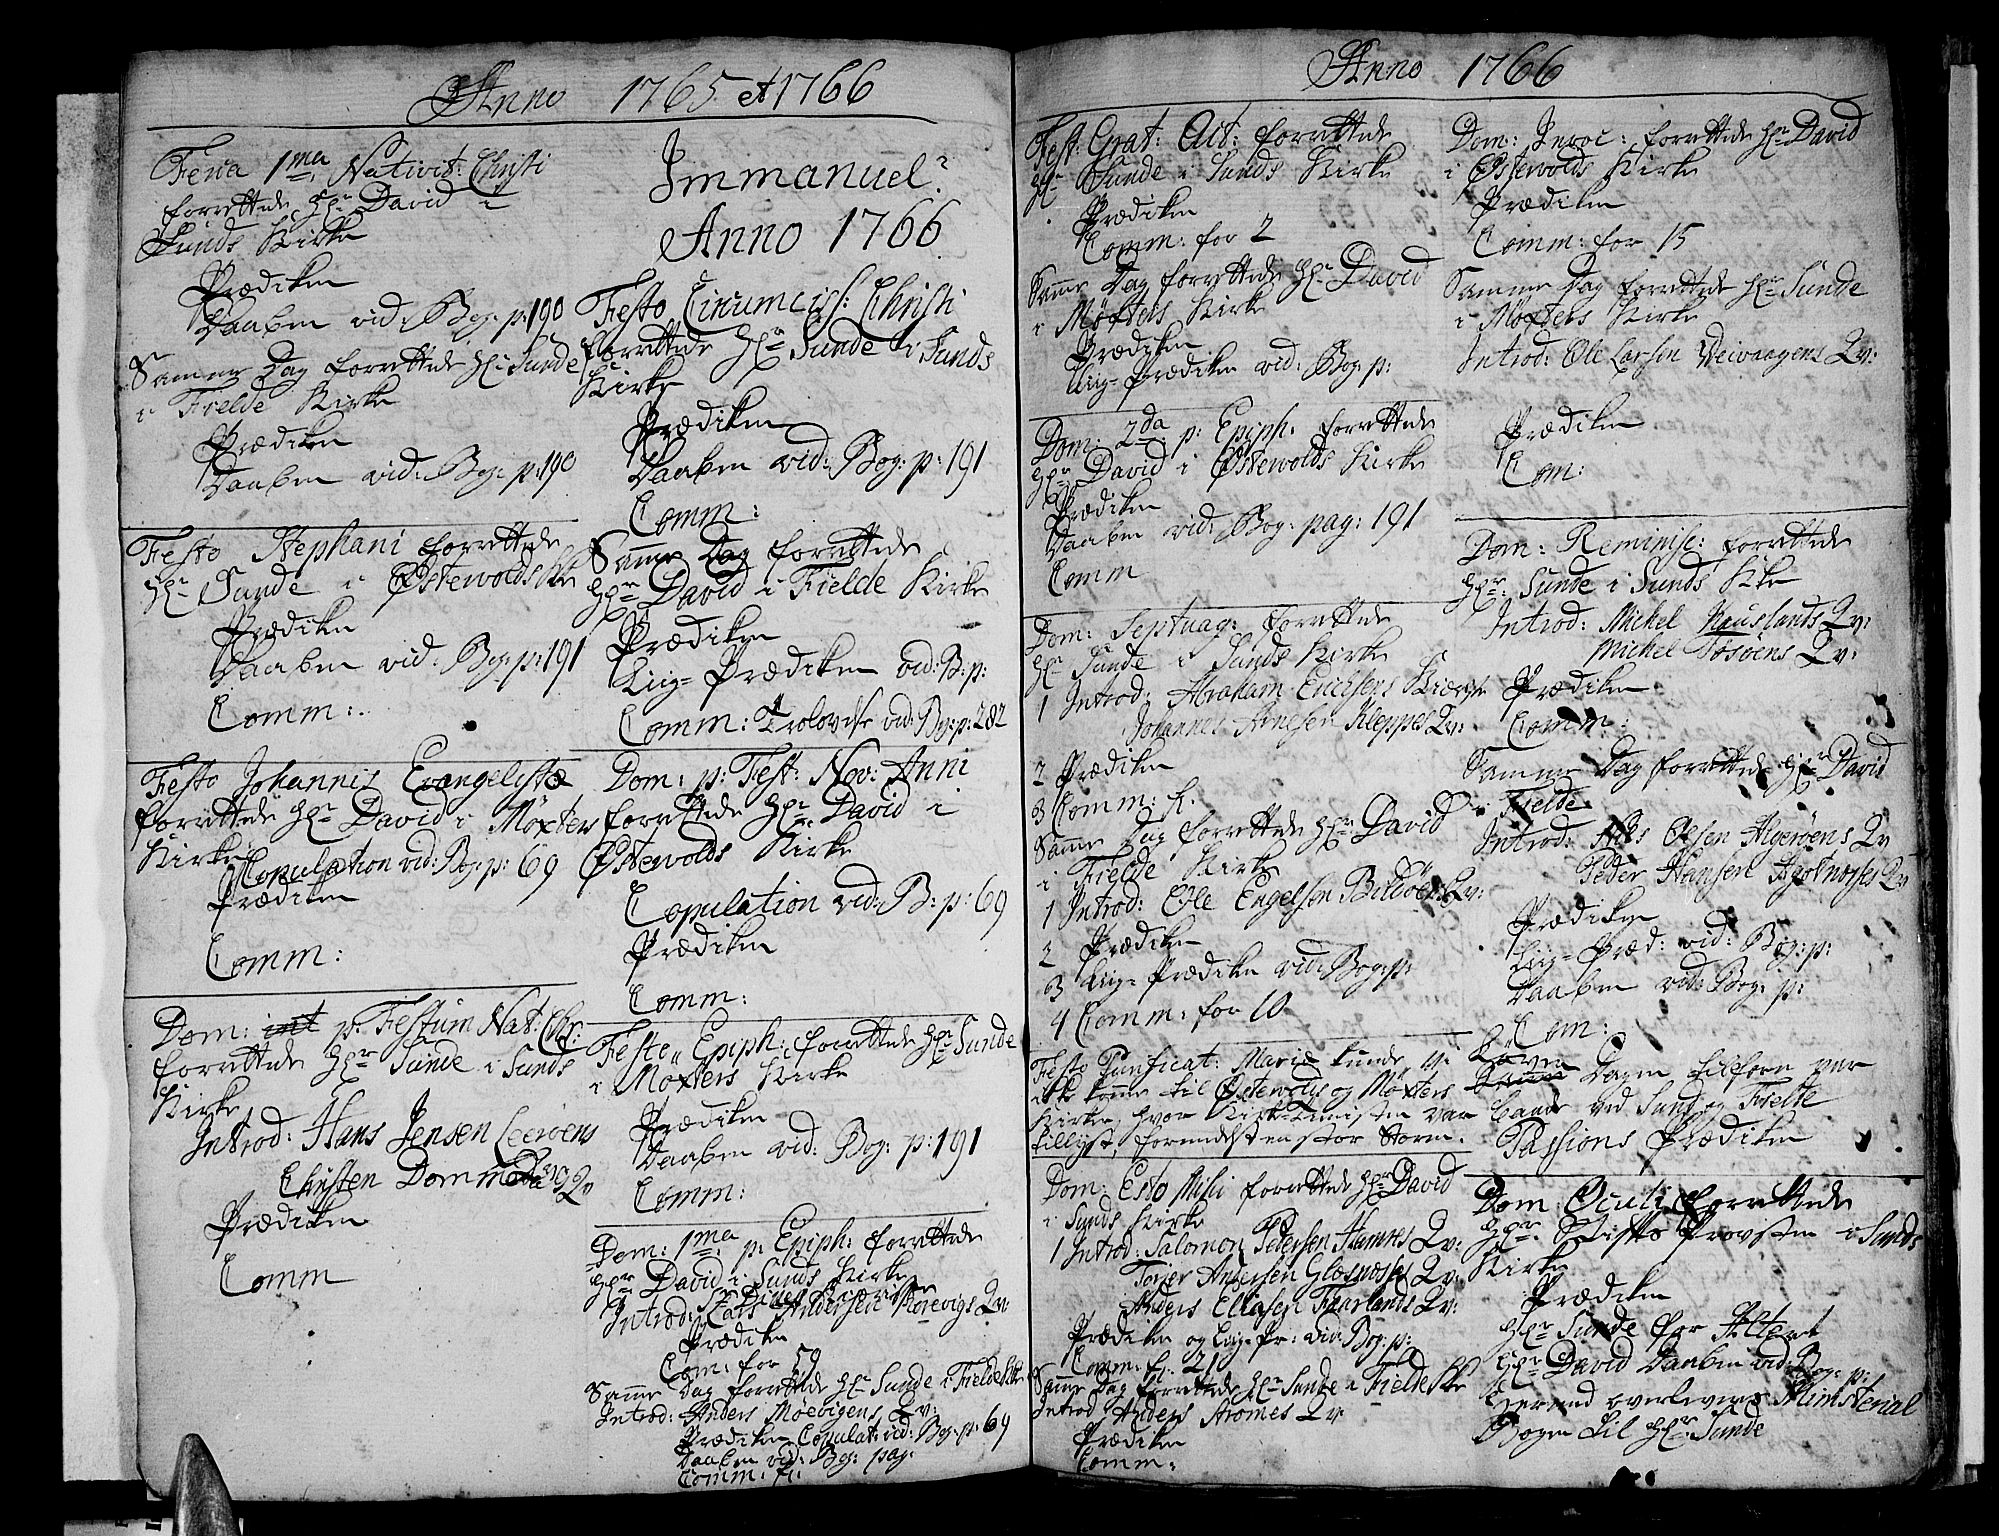 Anno 1765 et 1766
Feria 1ma Nativit: Christi
forrettede Hr David i
Sunds Kirke
Prædiken
Daaben vid: Bog: p: 190
Samme Dag forrettede Hr Sunde
i Fielde Kirke
Prædiken
Daaben vid: Bog: p: 190
Festo Stephani forrettede
Hr Sunde i Østevolds Kke
Prædiken
Daaben vid: Bog: p: 191
Comm:
Festo Johannis Evangelistæ
forrettede Hr David i Møxters
Kirke
Copulation vid: Bog: p: 69
Prædiken
Comm:
Dom: p: Festum Nat: Chr:
forrettede Hr Sunde i Sunds
Kirke
Introd: Hans Jensen Leerøens
Christen Dommedag Qv
Prædiken
Comm
Immanuel
Anno 1766
Festo Circumcis: Christi
forrettede Hr Sunde i Sunds
Kirke
Prædiken
Daaben vid: Bog: p: 191
Comm:
Samme Dag forrettede
Hr David i Fielde Kirke
Prædiken
Liig-Prædiken vid: B: p:
Comm: Trolovelse vid: Bog: p: 282
Dom: p: Fest: Nov: Anni
forrettede Hr David i
Østevolds Kirke
Copulation vid: B: p: 69
Prædiken
Comm:
Festo Epiph: forrettede Hr Sunde
i Møxters Kirke
Prædiken
Daaben vid: Bog: p: 191
Comm:
Dom: 1ma p: Epiph: forrettede
Hr David i Sunds Kirke
Introd: Lars Andersen Qv:
Prædiken
Com: for 59
Samme Dag forrettede Hr Sunde i Fielde Kke
Introd: Anders Møevigens Qv:
Prædiken Copulat: vid: Bog: p: 69
Daaben vid: Bog: pag:
Comm: f:
Anno 1766
Fest: Grat: Act: forrettede
Hr Sunde i Sunds Kirke
Prædiken
Comm: for 2
Samme Dag forrettede Hr David
i Møxters Kirke
Prædiken
Liig-Prædiken vid: Bog: p:
Dom: 2da p: Epiph: forrettede
Hr David i Østevolds Kirke
Prædiken
Daaben vid: Bog: pag: 191
Comm
Dom: Septuag: forrettede
Hr Sunde i Sunds Kirke
1 Introd: Abraham Erichsens
Johannes Arnesen Kleppes Qv:
2 Prædiken
3 Comm: f.
Samme Dag forrettede Hr David
i Fielde Kirke
1 Introd: Ole Engelsen Bildøens Qv:
2 Prædiken
3 Liig-Prædiken vid: Bog: p:
4 Comm: for 10
Festo Purificat: Mariæ kunde vi
ikke komme til Østevolds og Møxters
Kirker, hvor Kirke-Tienisten var
tillyst, formedelst en stor Storm.
Dom: Esto Mihi forrettede Hr David
i Sunds Kirke
1 Introd: Salomon Petersen Hamres Qv:
Torjer Andersen Glesnæsses Qv:
Anders Ellingsen Qv:
Prædiken og Liig-Pr: vid: Bog: p:
Comm: f: 21
Samme Dag forrettede Hr Sunde i Fielde Kke
Introd: Anders Qv
Prædiken
Comm:
Dom: Invoc: forrettede Hr David
i Østevolds Kirke
Prædiken
Comm: for 15
Samme Dag forrettede Hr Sunde
i Møxters Kirke
Introd: Ole Larsen Qv:
Prædiken
Com:
Dom: Reminisc: forrettede
Hr: Sunde i Sunds Kke
Introd: Michel Kauslands Qv:
Michel Tosøens Qv:
Prædiken
Comm:
Samme Dag forrettede Hr David
i Fielde
Introd: Nils Olsen Algerøens Qv
Peder Hansen Agotnæsses Qv
Prædiken
Liig-Præd: vid: Bog: p:
Daaben vid: Bog: p:
Com:
Dagen tilforn var
baade ved Sund og Fielde
Passions Prædiken
Dom: Oculi forrettede
Hr: Provsten i Sunds
Kirke
Prædiken
Hr Sunde for Alteret
Hr David Daaben vid: Bog: p:
Herved overleveres Ministerial
Bogen til Hr Sunde